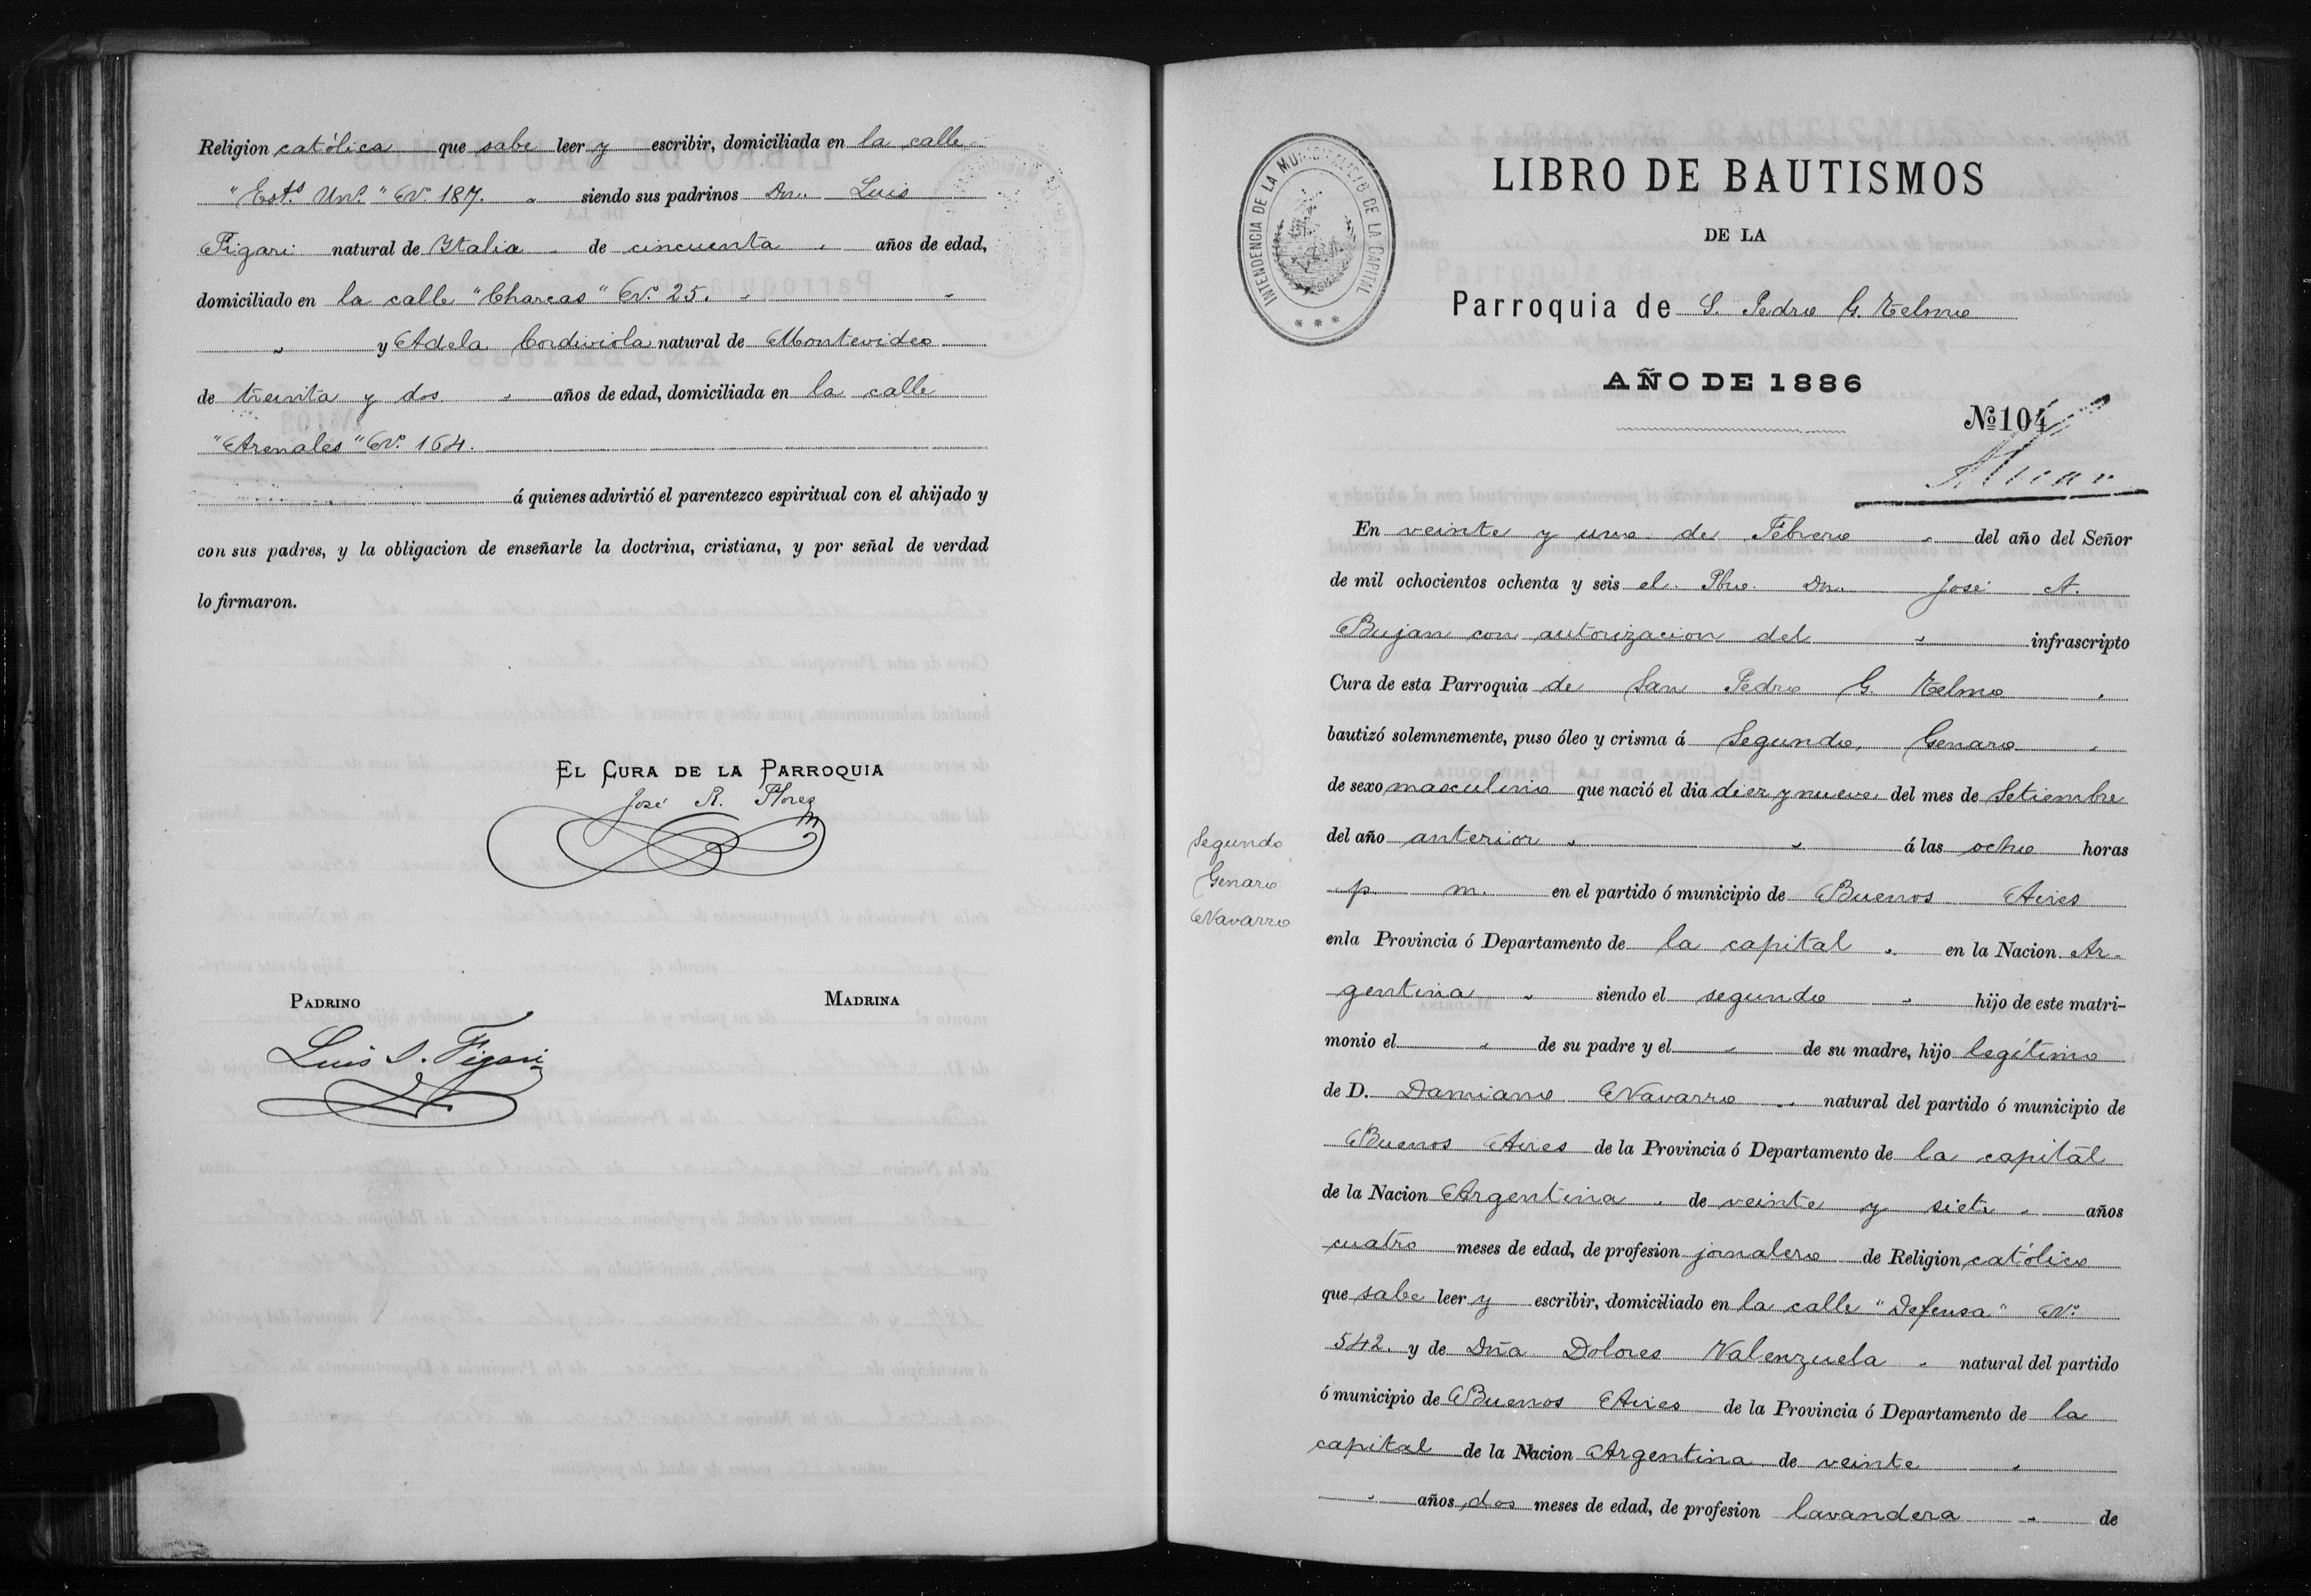 Religion católica que sabe leer y escribir, domiciliada en la calle
"Est.s Un.s" N.o 187. " siendo sus padrinos Dn. Luis
Figari natural de Italia " de cincuenta " años de edad,
domiciliado en la calle "Charcas" N.o 25. " "
" y Adela Cordiviola natural de Montevideo
de treinta y dos " años de edad, domiciliada en la calle
"Arenales" N.o 164.
á quienes advirtió el parentezco espiritual con el ahijado y
con sus padres, y la obligacion de enseñarle la doctrina, cristiana, y por señal de verdad
lo firmaron.
EL CURA DE LA PARROQUIA
José R. Flores
PADRINO MADRINA
Luis S. Figari
INTENDENCIA DE LA MUNICIPALIDAD DE LA CAPITAL
LIBRO DE BAUTISMOS
DE LA
Parroquia de S. Pedro G. Telmo
AÑO DE 1886
No 104
En veinte y uno de Febrero " del año del Señor
de mil ochocientos ochenta y seis el Pbro. Dn. José A.
Bujan con autorizacion del " infrascripto
Cura de esta Parroquia de San Pedro G. Telmo "
bautizó solemnemente, puso óleo y crisma á Segundo Genaro "
de sexo masculino que nació el dia diez y nueve del mes de Setiembre
del año anterior " " á las ocho horas
p m. en el partido ó municipio de Buenos Aires
enla Provincia ó Departamento de la capital " en la Nacion Ar-
gentina " siendo el segundo " hijo de este matri-
monio el " de su padre y el " de su madre, hijo legítimo
de D. Damiano Navarro " natural del partido ó municipio de
Buenos Aires de la Provincia ó Departamento de la capital
de la Nacion Argentina " de veinte y siete " años
cuatro meses de edad, de profesion jornalero de Religion católico
que sabe leer y escribir, domiciliado en la calle "Defensa" N.o
542. y de Dña Dolores Valenzuela " natural del partido
ó municipio de Buenos Aires de la Provincia ó Departamento de la
capital de la Nacion Argentina de veinte "
" años dos meses de edad, de profesion lavandera " de
Segundo
Genaro
Navarro